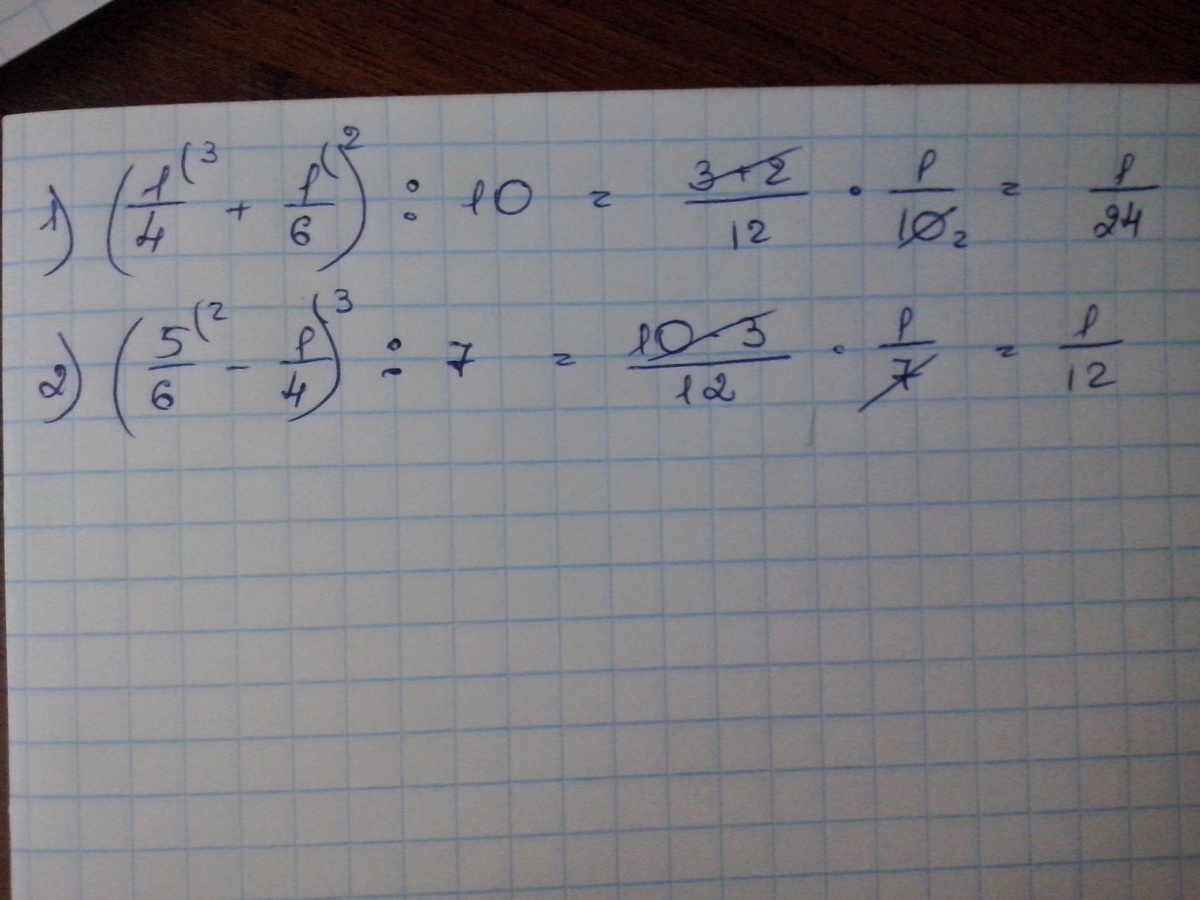 1) (1/4 (3 + 1/6 (2) : 10 = 3+2/12 · 1/10 2 = 1/24
2) (5/6 (2 - 1/4 (3) : 7 = 10-3/12 · 1/7 = 1/12